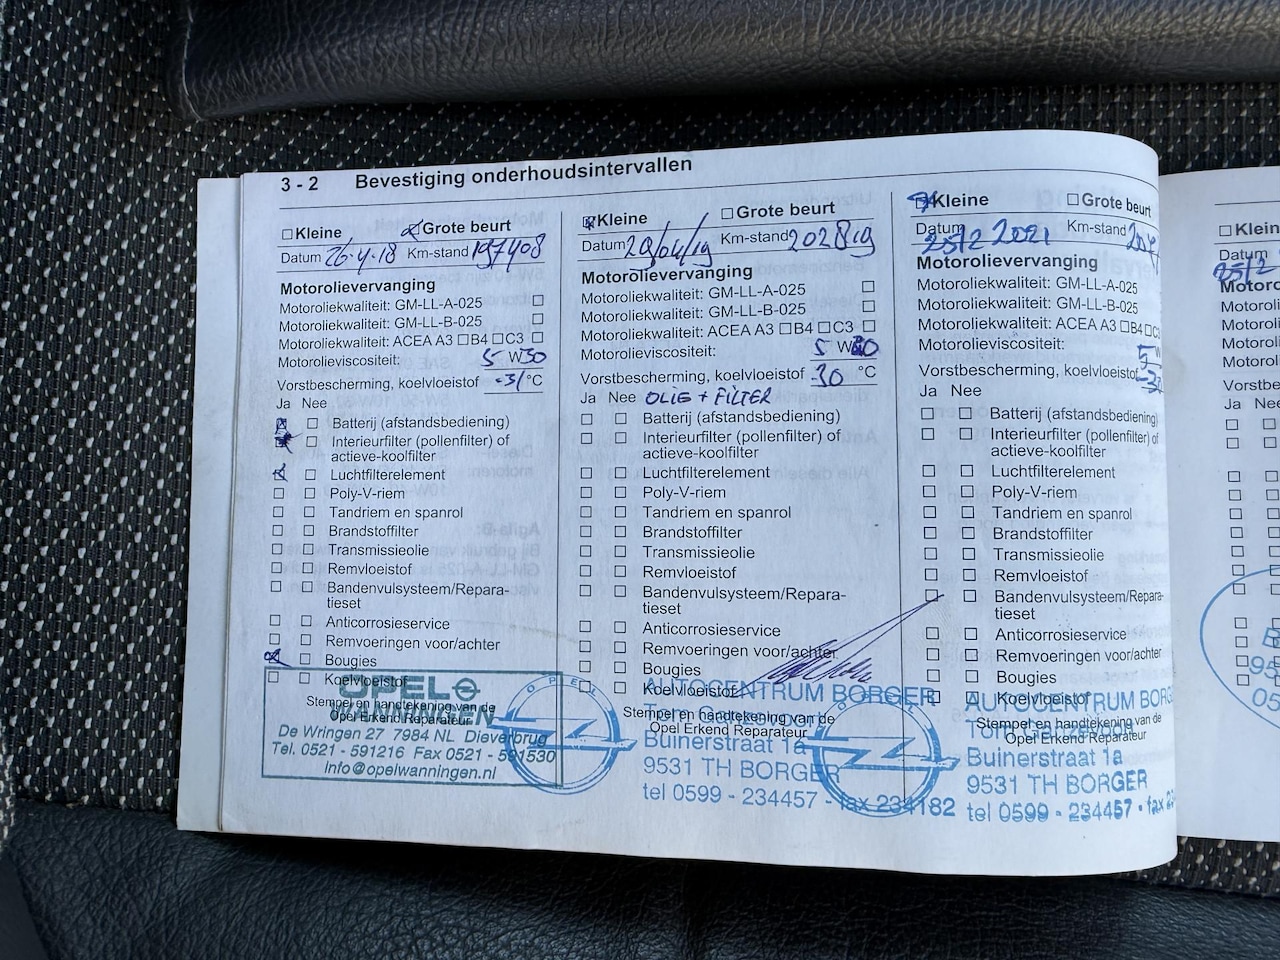 3 - 2 Bevestiging onderhoudsintervallen
☐Kleine ☒Grote beurt
Datum 26-4-18 Km-stand 197408
Motorolievervanging
Motoroliekwaliteit: GM-LL-A-025 ☐
Motoroliekwaliteit: GM-LL-B-025 ☐
Motoroliekwaliteit: ACEA A3 ☐B4 ☐C3 ☐
Motorolieviscositeit: 5 W30
Vorstbescherming, koelvloeistof -31 °C
Ja Nee
☒ ☐ Batterij (afstandsbediening)
☒ ☐ Interieurfilter (pollenfilter) of
actieve-koolfilter
☒ ☐ Luchtfilterelement
☐ ☐ Poly-V-riem
☐ ☐ Tandriem en spanrol
☐ ☐ Brandstoffilter
☐ ☐ Transmissieolie
☐ ☐ Remvloeistof
☐ ☐ Bandenvulsysteem/Repara-
tieset
☐ ☐ Anticorrosieservice
☐ ☐ Remvoeringen voor/achter
☒ ☐ Bougies
☐ ☐ Koelvloeistof
Stempel en handtekening van de
Opel Erkend Reparateur
OPEL
WANNINGEN
De Wringen 27 7984 NL Dieverbrug
Tel. 0521 - 591216 Fax 0521 - 591530
Info@opelwanningen.nl
☒Kleine ☐Grote beurt
Datum 29/04/19 Km-stand 202819
Motorolievervanging
Motoroliekwaliteit: GM-LL-A-025 ☐
Motoroliekwaliteit: GM-LL-B-025 ☐
Motoroliekwaliteit: ACEA A3 ☐B4 ☐C3 ☐
Motorolieviscositeit: 5 W30
Vorstbescherming, koelvloeistof -30 °C
Ja Nee OLIE + FILTER
☐ ☐ Batterij (afstandsbediening)
☐ ☐ Interieurfilter (pollenfilter) of
actieve-koolfilter
☐ ☐ Luchtfilterelement
☐ ☐ Poly-V-riem
☐ ☐ Tandriem en spanrol
☐ ☐ Brandstoffilter
☐ ☐ Transmissieolie
☐ ☐ Remvloeistof
☐ ☐ Bandenvulsysteem/Repara-
tieset
☐ ☐ Anticorrosieservice
☐ ☐ Remvoeringen voor/achter
☐ ☐ Bougies
☐ ☐ Koelvloeistof
Stempel en handtekening van de
Opel Erkend Reparateur
OPEL
AUTOCENTRUM BORGER
Buinerstraat 1a
9531 TH BORGER
tel 0599 - 234457 - fax 234182
☒Kleine ☐Grote beurt
Datum 25/2 2021 Km-stand
Motorolievervanging
Motoroliekwaliteit: GM-LL-A-025
Motoroliekwaliteit: GM-LL-B-025
Motoroliekwaliteit: ACEA A3 ☐B4 ☐C3
Motorolieviscositeit: 5 W
Vorstbescherming, koelvloeistof
Ja Nee
☐ ☐ Batterij (afstandsbediening)
☐ ☐ Interieurfilter (pollenfilter) of
actieve-koolfilter
☐ ☐ Luchtfilterelement
☐ ☐ Poly-V-riem
☐ ☐ Tandriem en spanrol
☐ ☐ Brandstoffilter
☐ ☐ Transmissieolie
☐ ☐ Remvloeistof
☐ ☐ Bandenvulsysteem/Repara-
tieset
☐ ☐ Anticorrosieservice
☐ ☐ Remvoeringen voor/achter
☐ ☐ Bougies
☐ ☐ Koelvloeistof
Stempel en handtekening van de
Opel Erkend Reparateur
AUTOCENTRUM BORG
Buinerstraat 1a
9531 TH BORGER
tel 0599 - 234457 - fax
☐Klein
Datum
25/2
Motoro
Motoroli
Motoroli
Motoroli
Motoroli
Vorstbe
Ja Nee